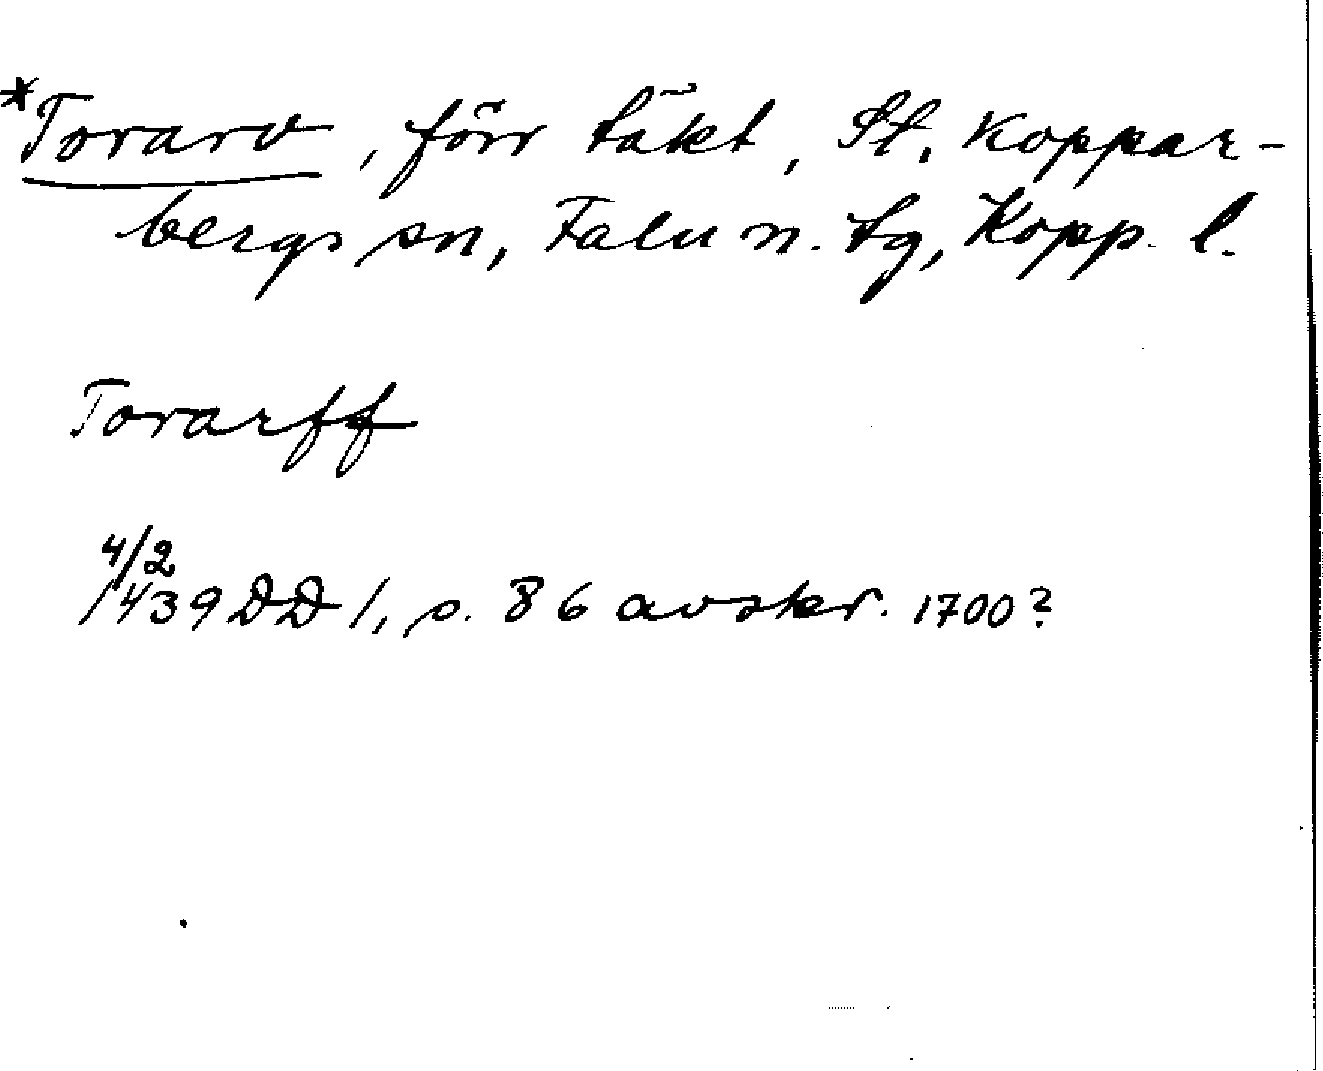 *Torarv, förr täkt, St. Koppar-
bergs sn, Falu n. tg, Kopp. l.
Torarff
4/2
1439 DD 1, s. 86 avskr. 1700?